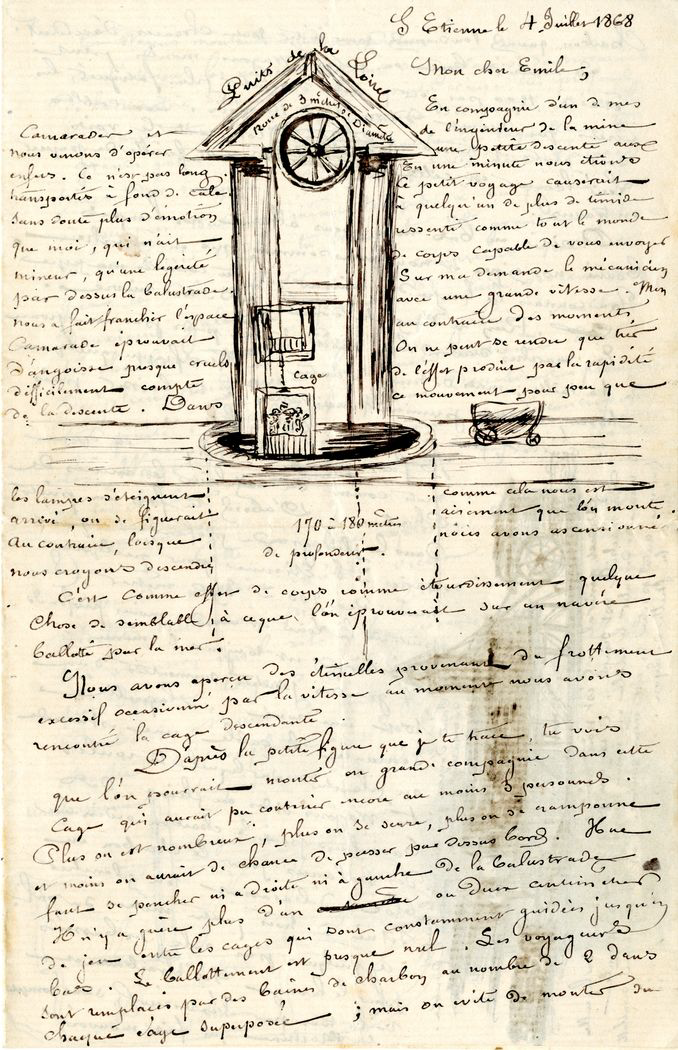 S Etienne le 4 Juillet 1868
Puits de la Loire
Mon cher Emile,
Roue de 3 mètres de Diamètre
En compagnie d'un de mes
Camarades et de l'ingénieur de la mine
nous venons d'opérer une petite descente aux
enfers. Ce n'est pas long En une minute nous étions
transportés à fond de cale. Ce petit voyage causerait
sans doute plus d'émotion à quelqu'un de plus timide
que moi, qui n'ait ressentie comme tout le monde
mineur, qu'une légereté de corps capable de vous envoyer
par dessus la balustrade. Sur ma demande le mécanicien
nous a fait franchir l'espace avec une grande vitesse. Mon
Camarade éprouvait au contraire des moments
d'angoisse presque cruels On ne peut se rendre que très
difficilement compte de l'effet produit par la rapidité
de la descente. Dans ce mouvement pour peu que
Cage
les lampes s'éteignent comme cela nous est
arrivé, on se figurerait aisement que l'on monte
Au contraire, lorsque nous avons ascensionné
nous croyons descendre
170 à 180 mètres
de profondeur.
C'est comme effet de corps comme étourdissement quelque
chose de semblable à ce que l'on éprouverait sur un navire
ballotté par la mer.
Nous avons aperçu des étincelles provenant du frottement
excessif occasionné par la vitesse au moment nous avons
rencontré la cage descendante.
D'après la petite figure que je te trace, tu vois
que l'on pourrait monter en grande compagnie dans cette
Cage qui aurait pu contenir encore au moins 3 personnes.
Plus on est nombreux, plus on se serre, plus on se cramponne
et moins on aurait de chance de passer par dessus bord. Il ne
faut se pencher ni a droite ni à gauche de la balustrade
Il n'y a guère plus d'un ou deux centimètres
de jeu entre les cages qui sont constamment guidées jusqu'en
bas. Le ballottement est presque nul. Les voyageurs
sont remplacés par des baines de charbon au nombre de 2 dans
chaque cage superposée ; mais on évite de monter du